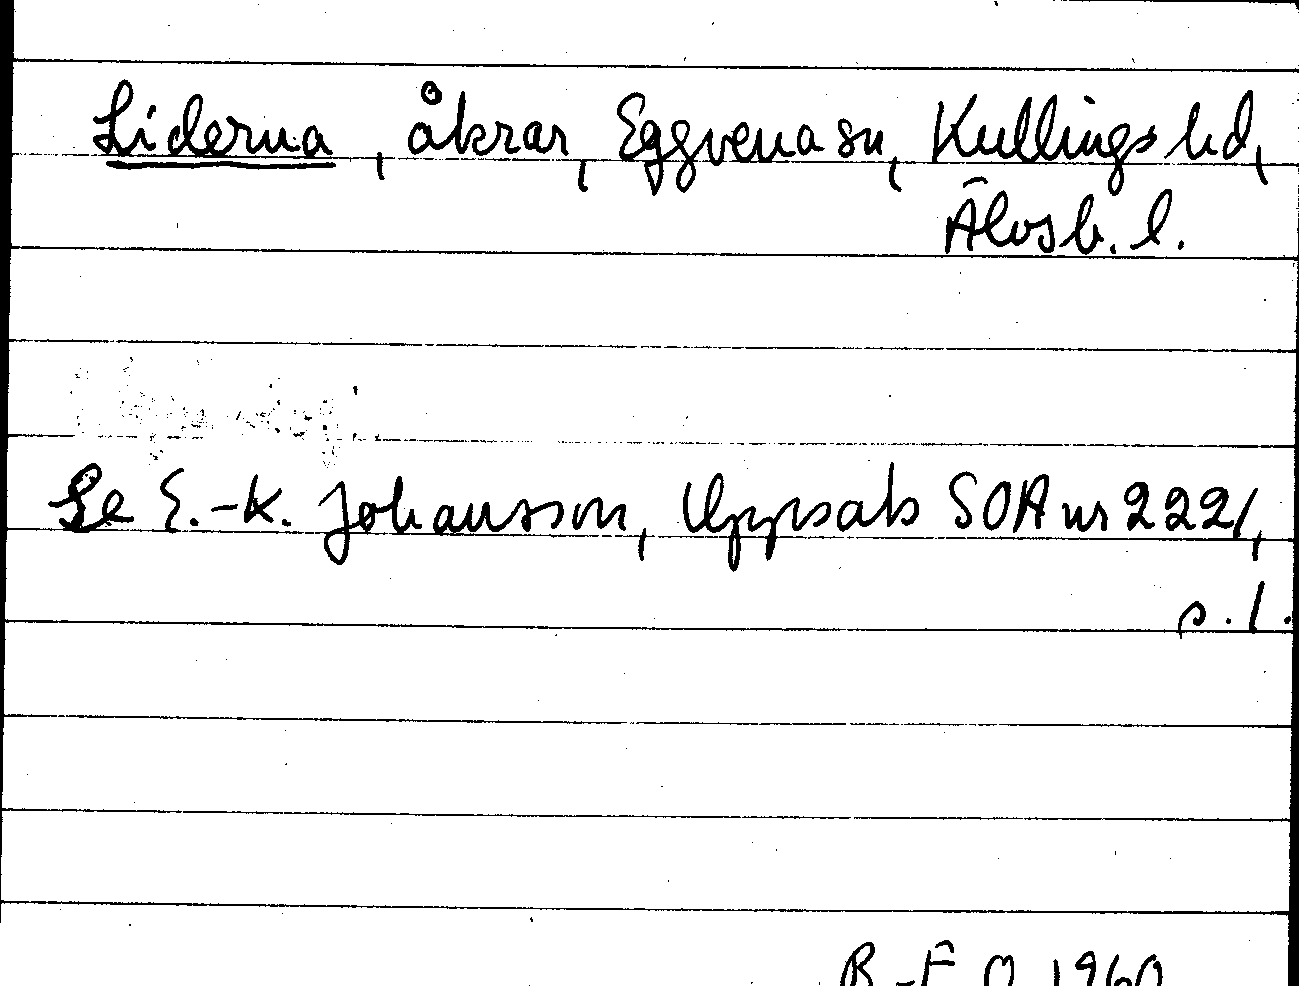 Liderna, åkrar, Eggvena sn, Kullings hd,
Älvsb. l.
Se E.-K. Johansson, Uppsats SOA nr 2221,
s. 1.
B-F O 1960